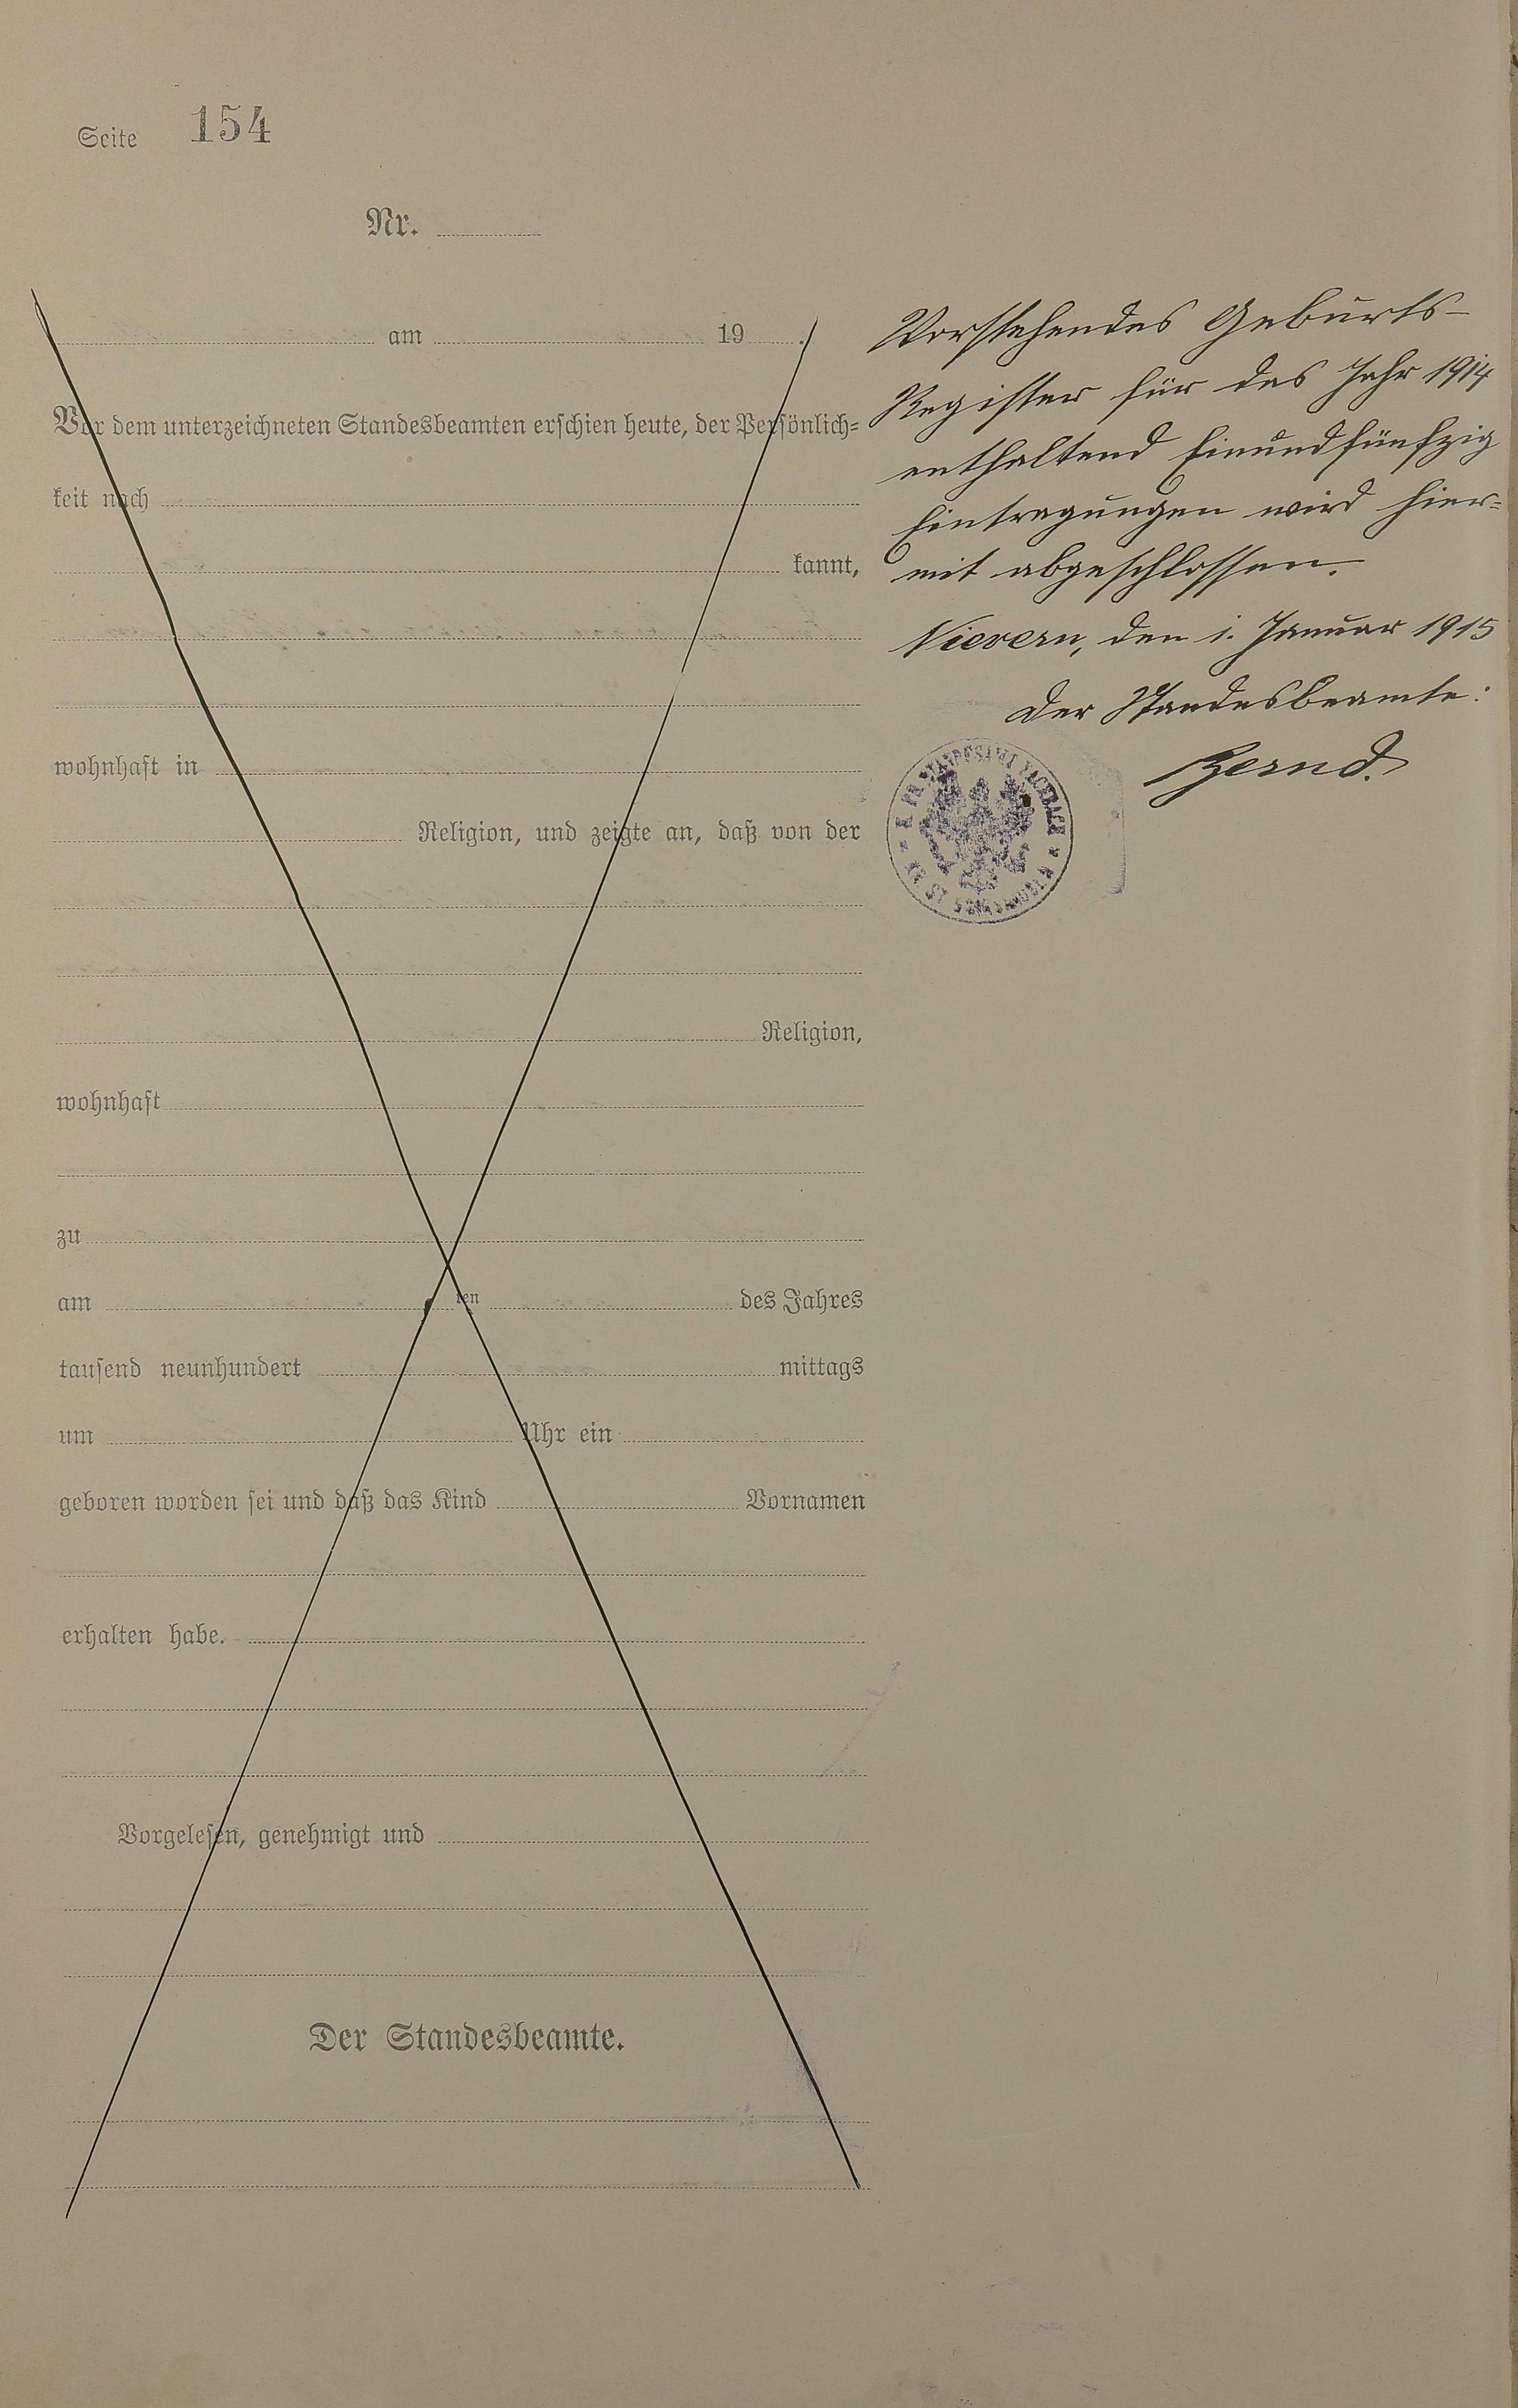 Seite 154
Nr.
am 19 .
Vor dem unterzeichneten Standesbeamten erschien heute, der Persönlich=
keit nach
kannt,
wohnhaft in
Religion, und zeigte an, daß von der
Religion,
wohnhaft
zu
am ten des Jahres
tausend neunhundert mittags
um Uhr ein
geboren worden sei und daß das Kind Vornamen
erhalten habe.
Vorgelesen, genehmigt und
Der Standesbeamte.
Vorstehendes Geburts-
Register für das Jahr 1914
enthaltend Einundfünfzig
Eintragungen wird hier=
mit abgeschlossen.
Nievern, den 1. Januar 1915
Der Standesbeamte:
Bernd.
STANDESAMT FACHBACH